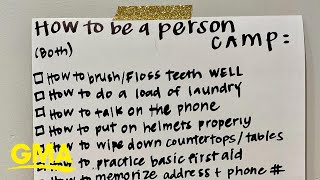 How to be a person
(Both) CAMP:
How to brush/floss teeth WELL
How to do a load of laundry
How to talk on the phone
How to put on helmets properly
How to wipe down countertops/tables
How to practice basic first aid
How to memorize address + phone #
GMA